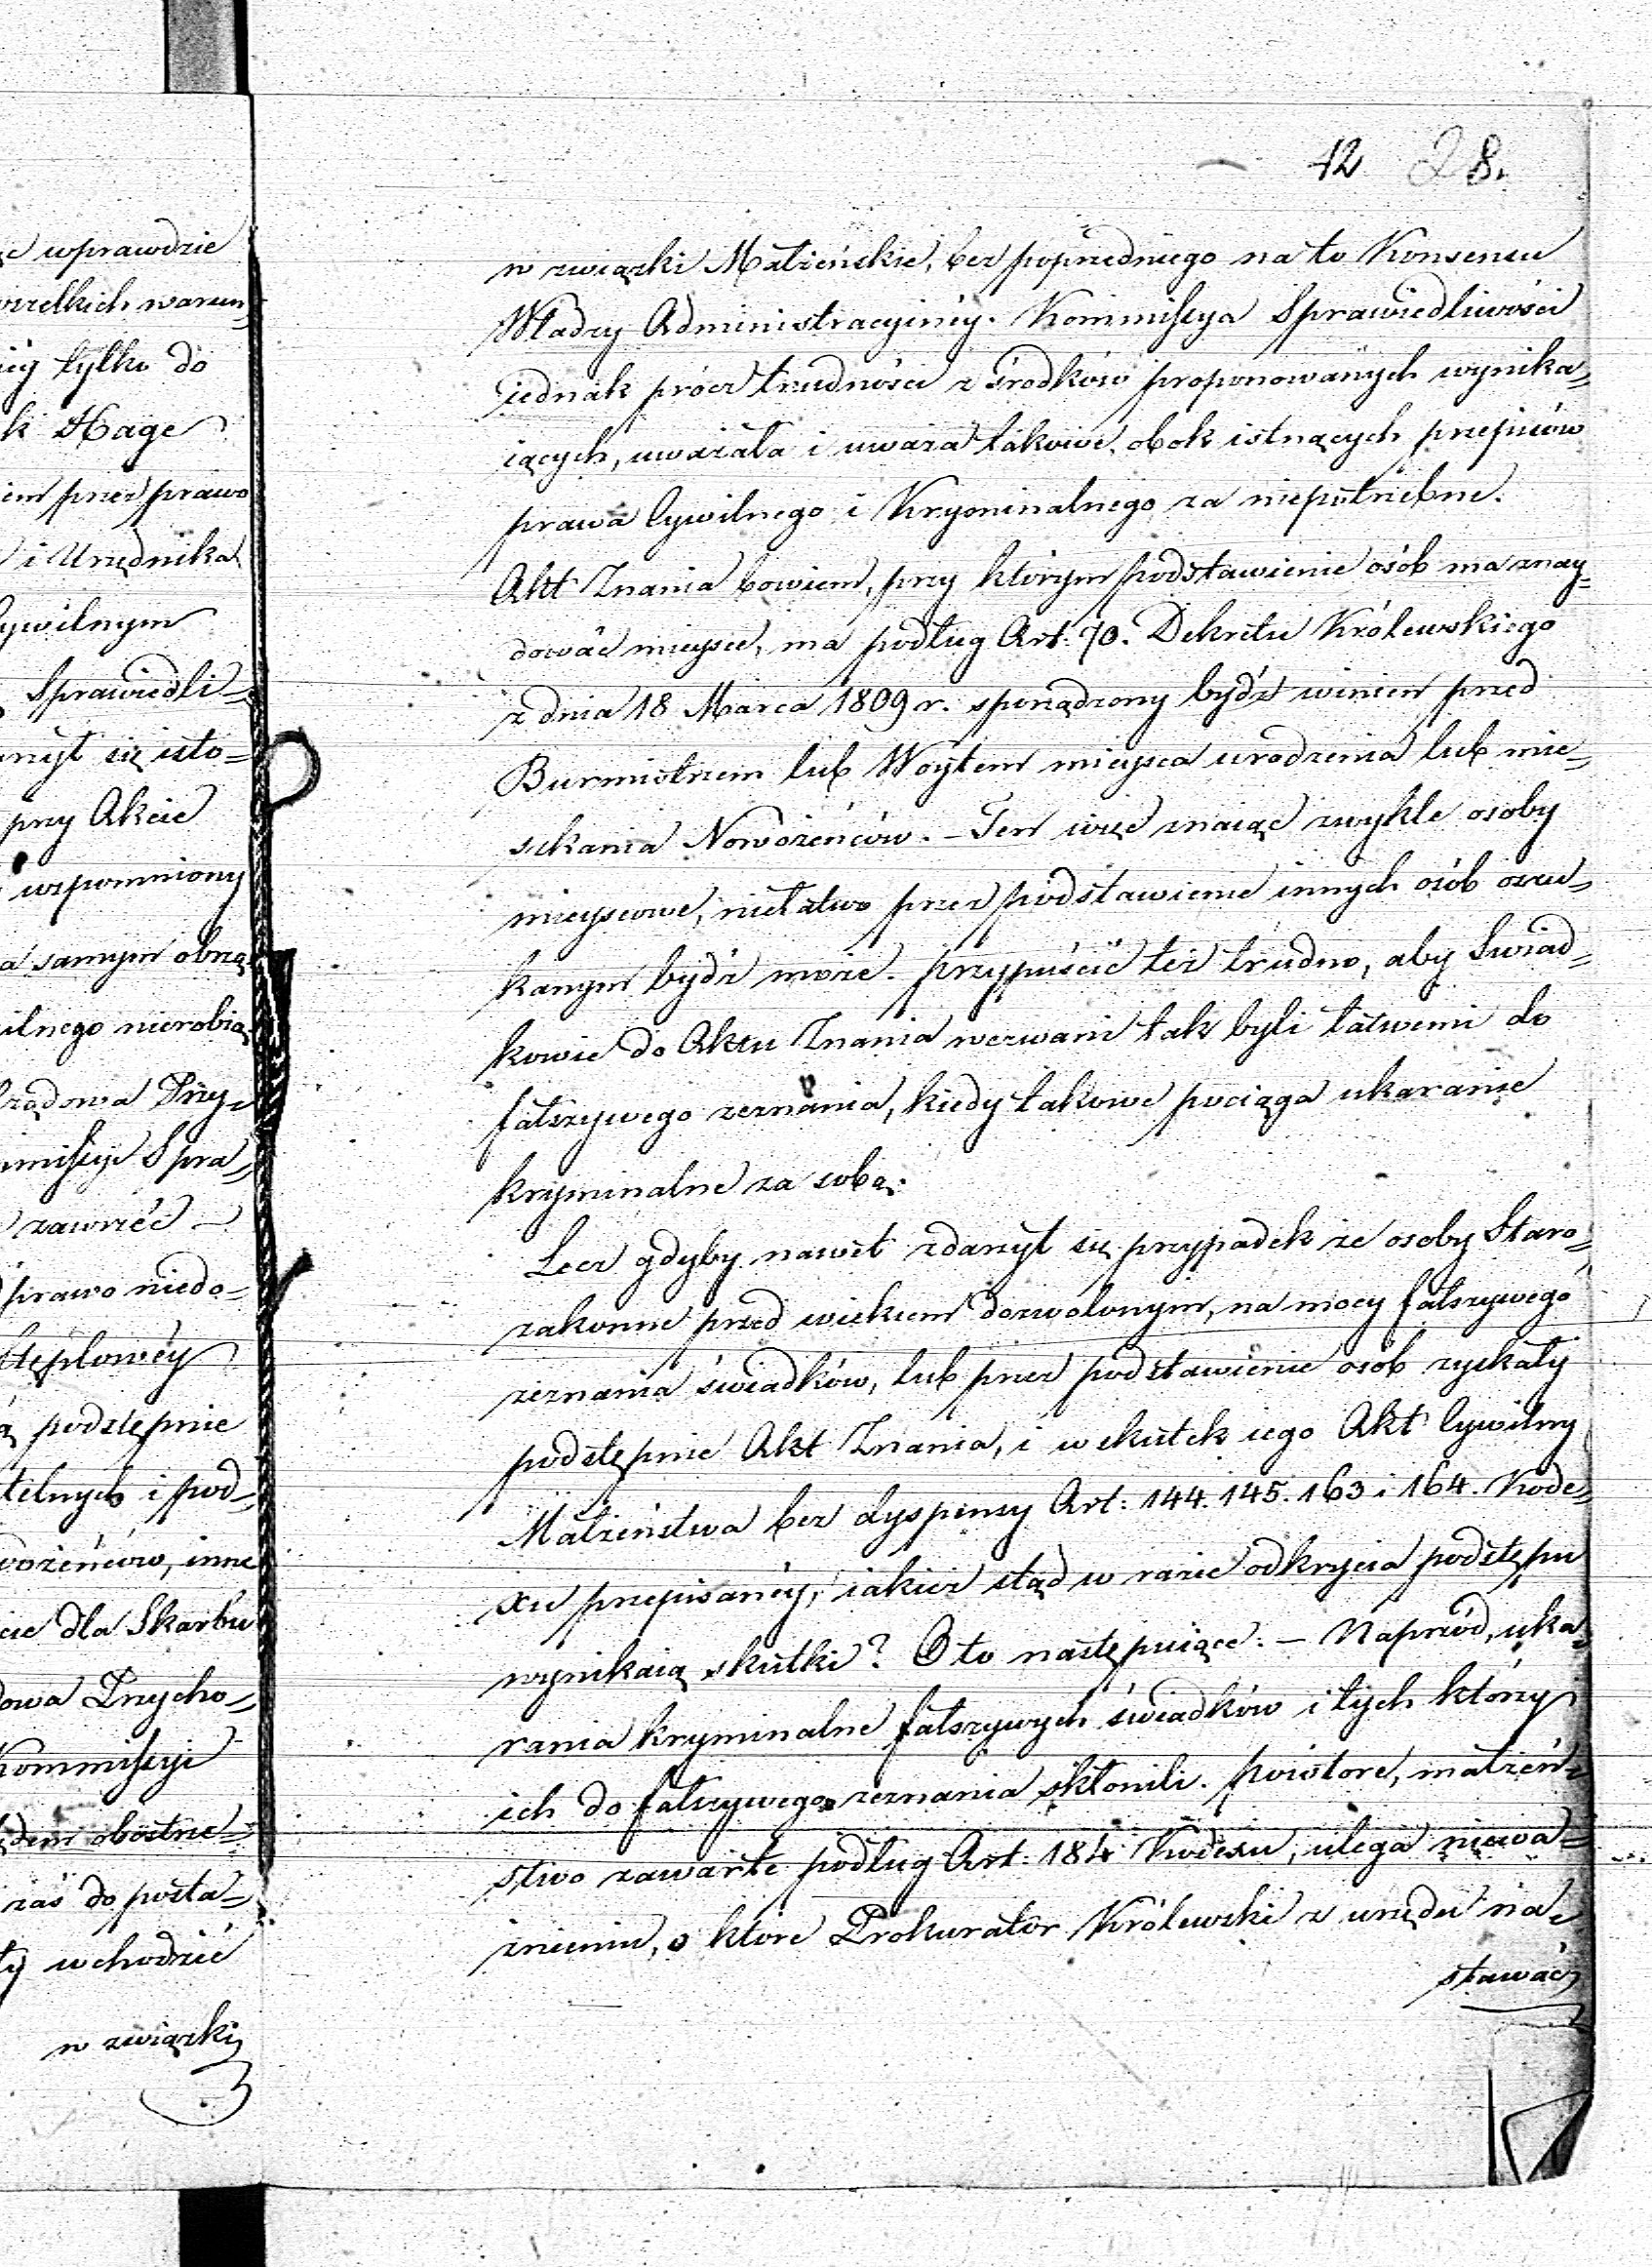 ę wprawdzie
wszelkich warun=
iéy tylko do
k Hage
iem przez prawo
i Urzędnika
Cywilnym
Sprawiedli=
rzył się isto=
przy Akcie
wspomniony
a samym obrzą=
ilnego nierobią
rządowa Przy=
mmissyi Spra=
zawrzéć —
prawo niedo=
stęplowéy
ą podstępnie
telnych i pod=
wożeńców, inne
cie dla Skarbu
dowa Przycho=
Kommissyi
ędem obostrze=
zaś do posta=
ły wchodzić
w związki
12 28.
w związki Małżeńskie, bez poprzedniego na to Konsensu
Władzy Administracyinéy. Kommissya Sprawiedliwości
iednak prócz trudności z środków proponowanych wynika=
iących, uważała i uważa takowe, obok istnących przepisów
prawa Cywilnego i Kryminalnego za niepotrzebne.
Akt Znania bowiem, przy którym podstawienie osób ma znay=
dować mieysce, ma podług Art: 70. Dekretu Królewskiego
z dnia 18 Marca 1809 r. sporządzony bydź winien przed
Burmistrzem lub Woytem mieysca urodzenia lub mie=
szkania Nowożeńców. — Ten więc znaiąc zwykle osoby
mieyscowe, niełatwo przez podstawienie innych osób oszu=
kanym bydź może. przypuścić też trudno, aby Swiad=
kowie do Aktu Znania wezwani tak byli łatwemi do
fałszywego zeznania, kiedy takowe pociąga ukaranie
kryminalne za sobą.
Lecz gdyby nawet zdarzył się przypadek że osoby Staro=
zakonne przed wiekiem dozwolonym, na mocy fałszywego
zeznania świadków, lub przez podstawienie osób zyskały
podstępnie Akt Znania, i w skutek iego Akt Cywilny
Małżeństwa bez dyspensy Art: 144. 145. 163 i 164. Kode=
xu przepisanéy, iakież stąd w razie odkrycia podstępu
wynikaią skutki? Oto następuiące: — Naprzód, uka=
rania kryminalne fałszywych świadków i tych którzy
ich do fałszywego zeznania skłonili. powtore, małżeń=
stwo zawarte podług Art: 184 Kodexu, ulega niewa=
żnieniu, o ktore Prokurator Królewski z urzędu na=
stawać